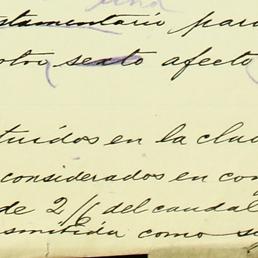 una
stamentario para
otro sexto afecto
tuidos en la clau
considerados en con
de 2/6 del caudal
smitida como se